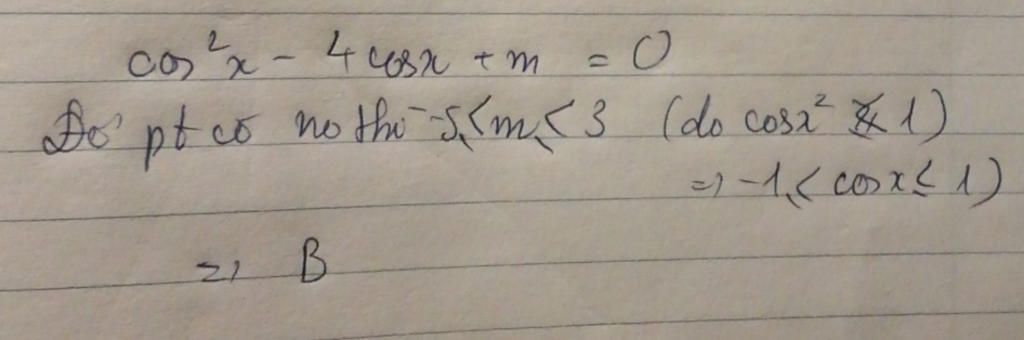 cos²x - 4cosx + m = 0
Để pt có no thì -5 ≤ m ≤ 3 (do cosx² ≤ 1)
=> -1 ≤ cosx ≤ 1)
=> B